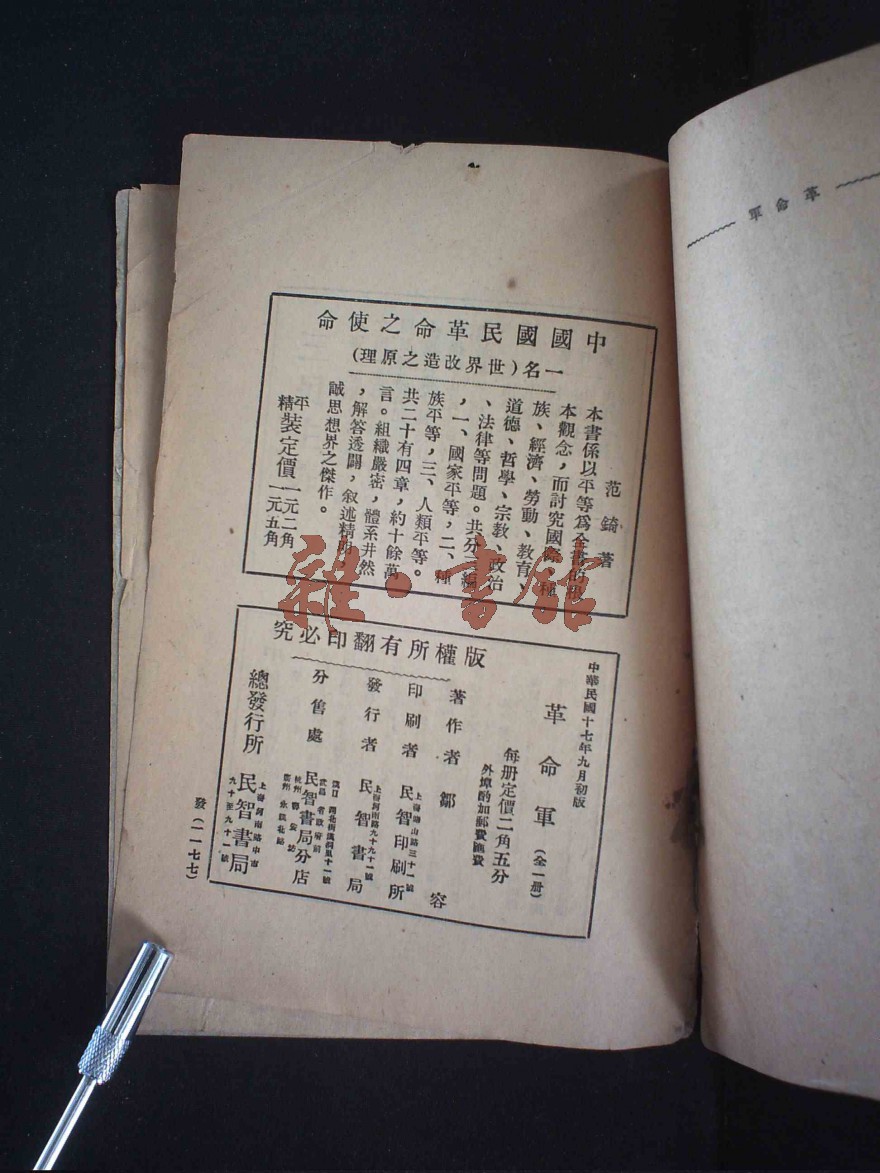 革命軍
中國國民革命之使命
一名(世界改造之原理)
范錡著
本書係以平等爲全書
本觀念,而討究國際、種
族、經濟、勞動、教育、
道德、哲學、宗教、政治
、法律等問題。共分三編
,一、國家平等,二、種
族平等,三、人類平等。
共二十有四章,約十餘萬
言。組織嚴密,體系井然
,解答透闢,叙述精
誠思想界之傑作。
平裝定價一元二角
精裝定價一元五角
版權所有翻印必究
中華民國十七年九月初版
革命軍(全一册)
每册定價二角五分
外埠酌加郵費匯費
著作者 鄒容
印刷者 民智印刷所
上海 山路三十一號
發行者 民智書局
上海河南路九十九十一號
分售處 民智書局分店
漢口
武昌
杭州
廣州 永漢北路
總發行所 民智書局
上海河南路中市
九十至九十一號
發(一一七七)
雜·書館